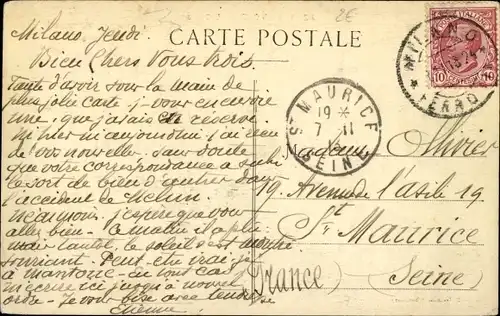 Milano Jeudi.
CARTE POSTALE
Bien Chers Vous trois.
Faute d'avoir sous la main de
plus jolie carte, j vous en envoie
une, que j'avais en réserve.
Ni hier ni aujourd'hui j'ai rien
de vos nouvelles. Sans doute
que votre correspondance a subi
le sort de bien d'autres dans
l'accident de Melun.
Néanmoins, j'espère que vous
allez bien. Ce matin il a plu
mais tantôt le soleil est
souriant. Peut être irai-je
à mantoue. en tout cas
m'écrire ici jusqu'à nouvel
ordre. Je vous bise avec tendresse
Etienne
MILANO
FERROV
10
ST MAURICE
19 *
7 11
SEINE
Madame Olivier
19. Avenue de l'asile 19
St. Maurice
(Seine)
(France)
2E